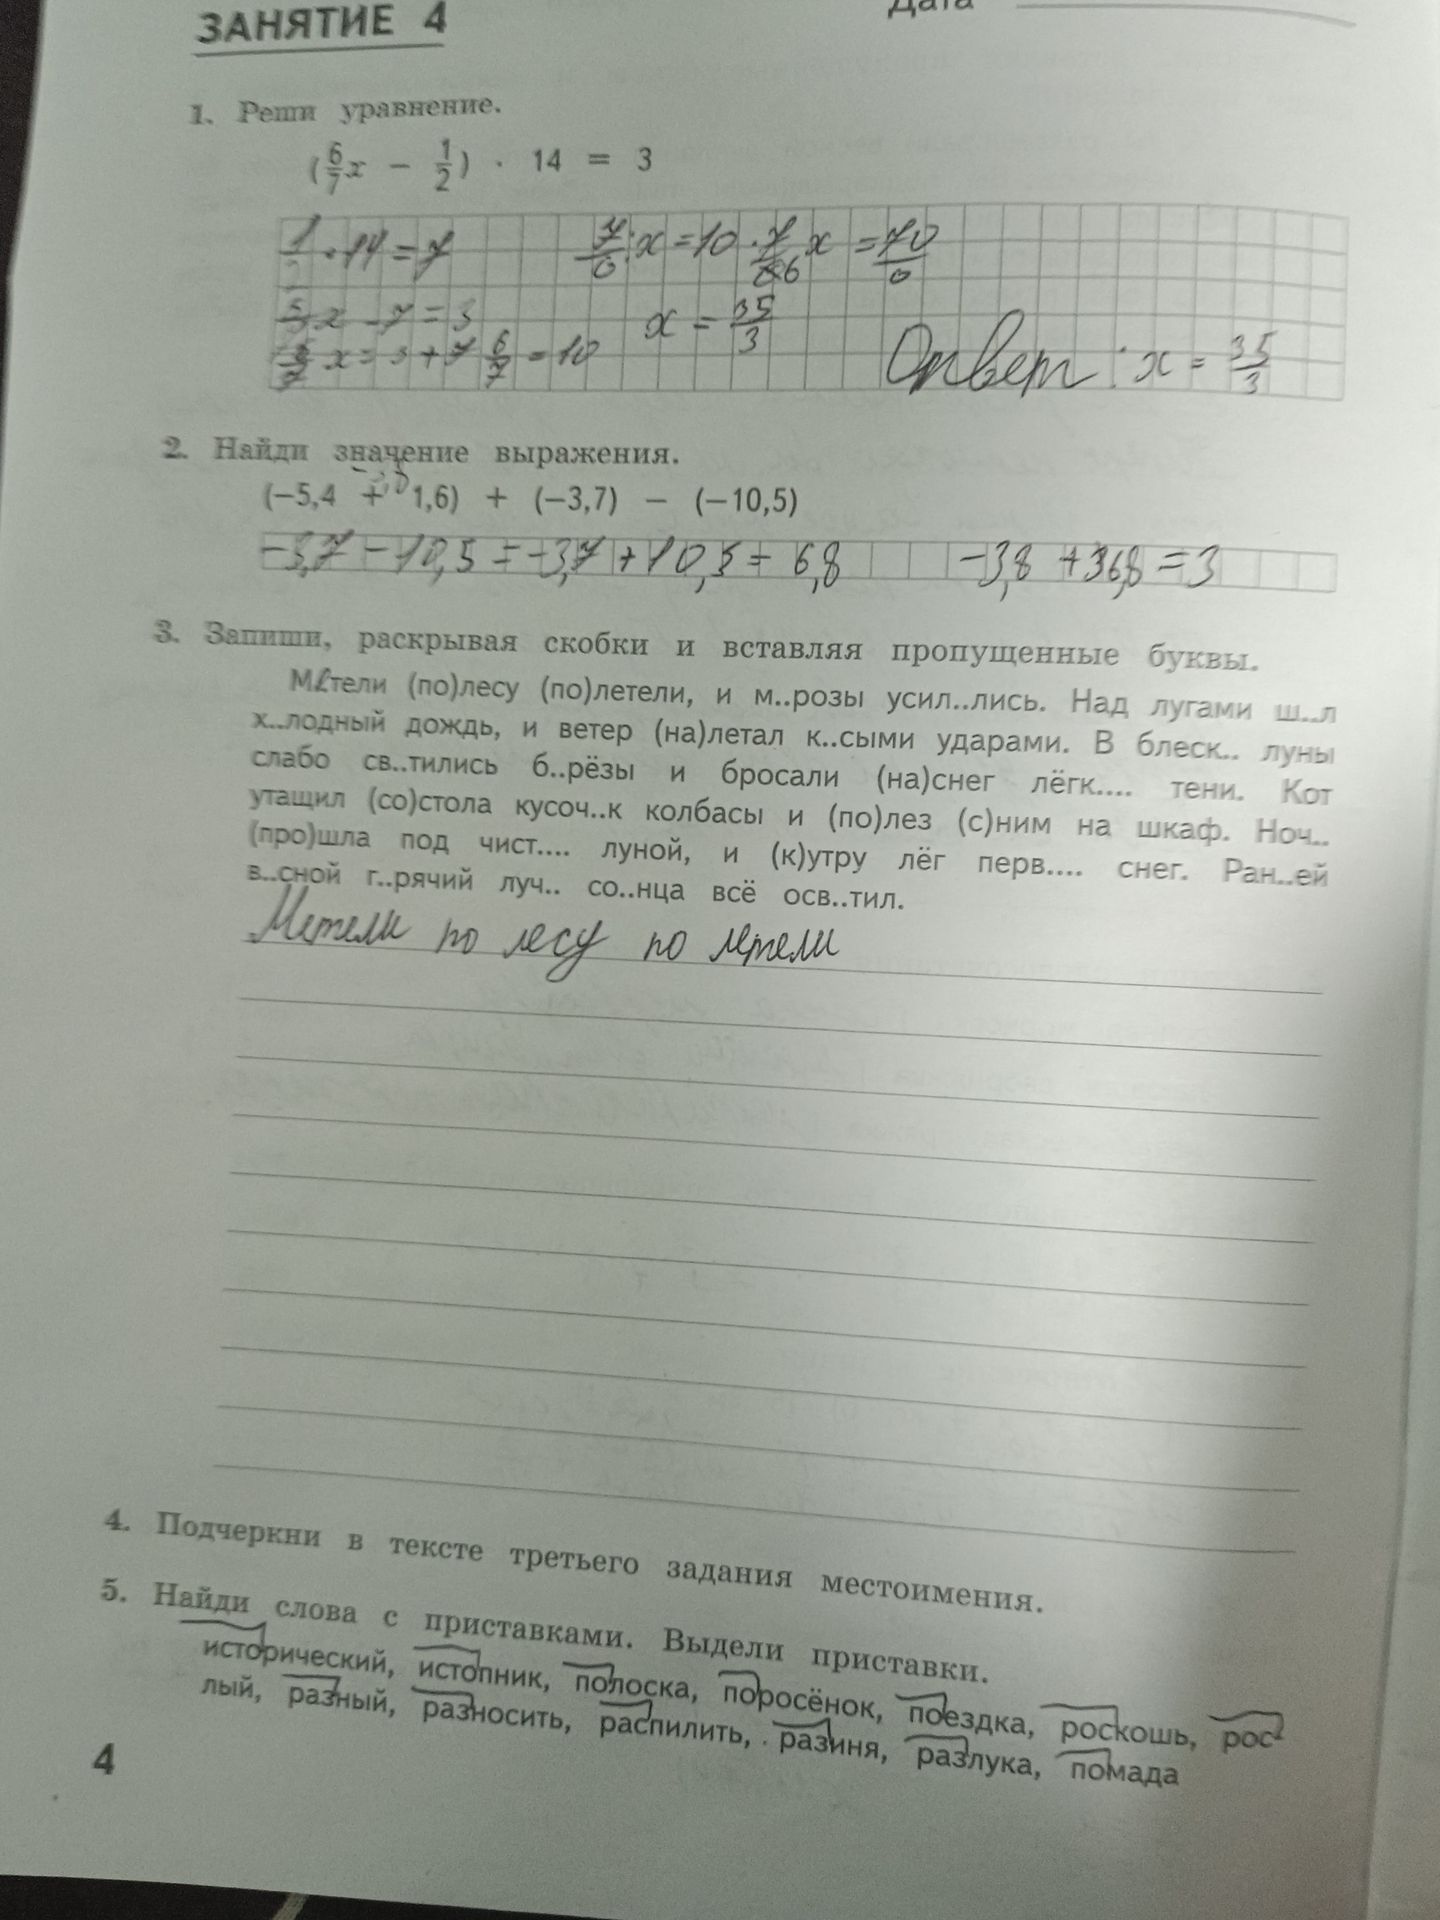 ЗАНЯТИЕ 4
Дата
1. Реши уравнение.
(6/7x − 1/2) · 14 = 3
1 · 14 = 7
7/6 : x = 10 · 7/6 x = 70/6
x − 7 = 3
x = 3 + 7 6/7 = 10
x = 35/3
Ответ : x = 35/3
2. Найди значение выражения.
(−5,4 + 1,6) + (−3,7) − (−10,5)
−3,7 − 10,5 = −3,7 + 10,5 = 6,8 −3,8 + 36,8 = 3
3. Запиши, раскрывая скобки и вставляя пропущенные буквы.
Метели (по)лесу (по)летели, и м..розы усил..лись. Над лугами ш..л
х..лодный дождь, и ветер (на)летал к..сыми ударами. В блеск.. луны
слабо св..тились б..рёзы и бросали (на)снег лёгк.... тени. Кот
утащил (со)стола кусоч..к колбасы и (по)лез (с)ним на шкаф. Ноч..
(про)шла под чист.... луной, и (к)утру лёг перв.... снег. Ран..ей
в..сной г..рячий луч.. со..нца всё осв..тил.
Метели по лесу по летели
4. Подчеркни в тексте третьего задания местоимения.
5. Найди слова с приставками. Выдели приставки.
исторический, истопник, полоска, поросёнок, поездка, роскошь, рос-
лый, разный, разносить, распилить, разиня, разлука, помада
4